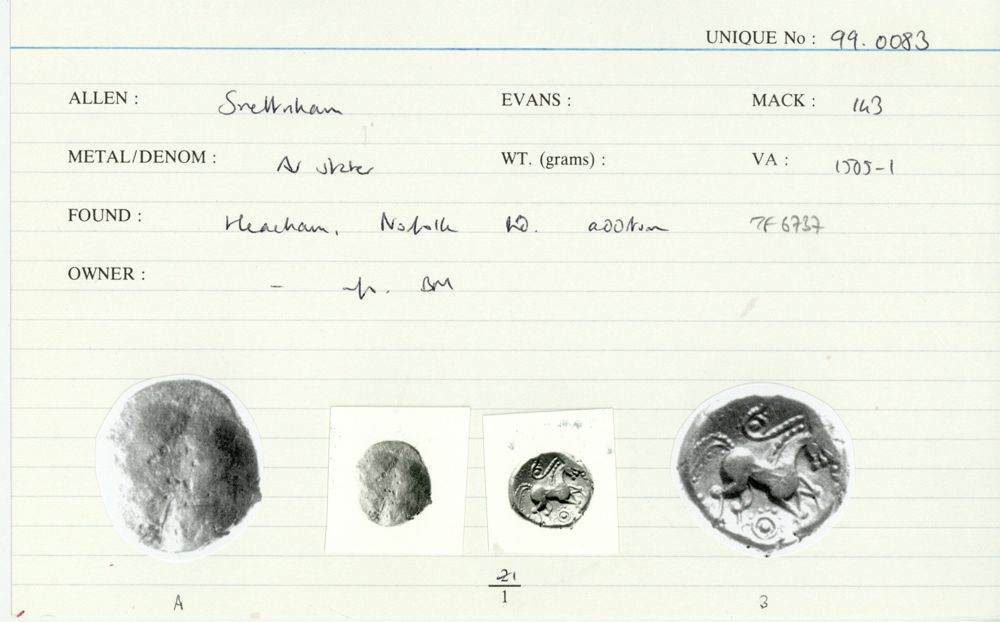 UNIQUE No : 99.0083
ALLEN : Snettisham EVANS : MACK : 143
METAL/DENOM : AV stater WT. (grams) : VA : 1505-1
FOUND : Heacham, Norfolk TF 6737
OWNER : - BM
21
1
A B